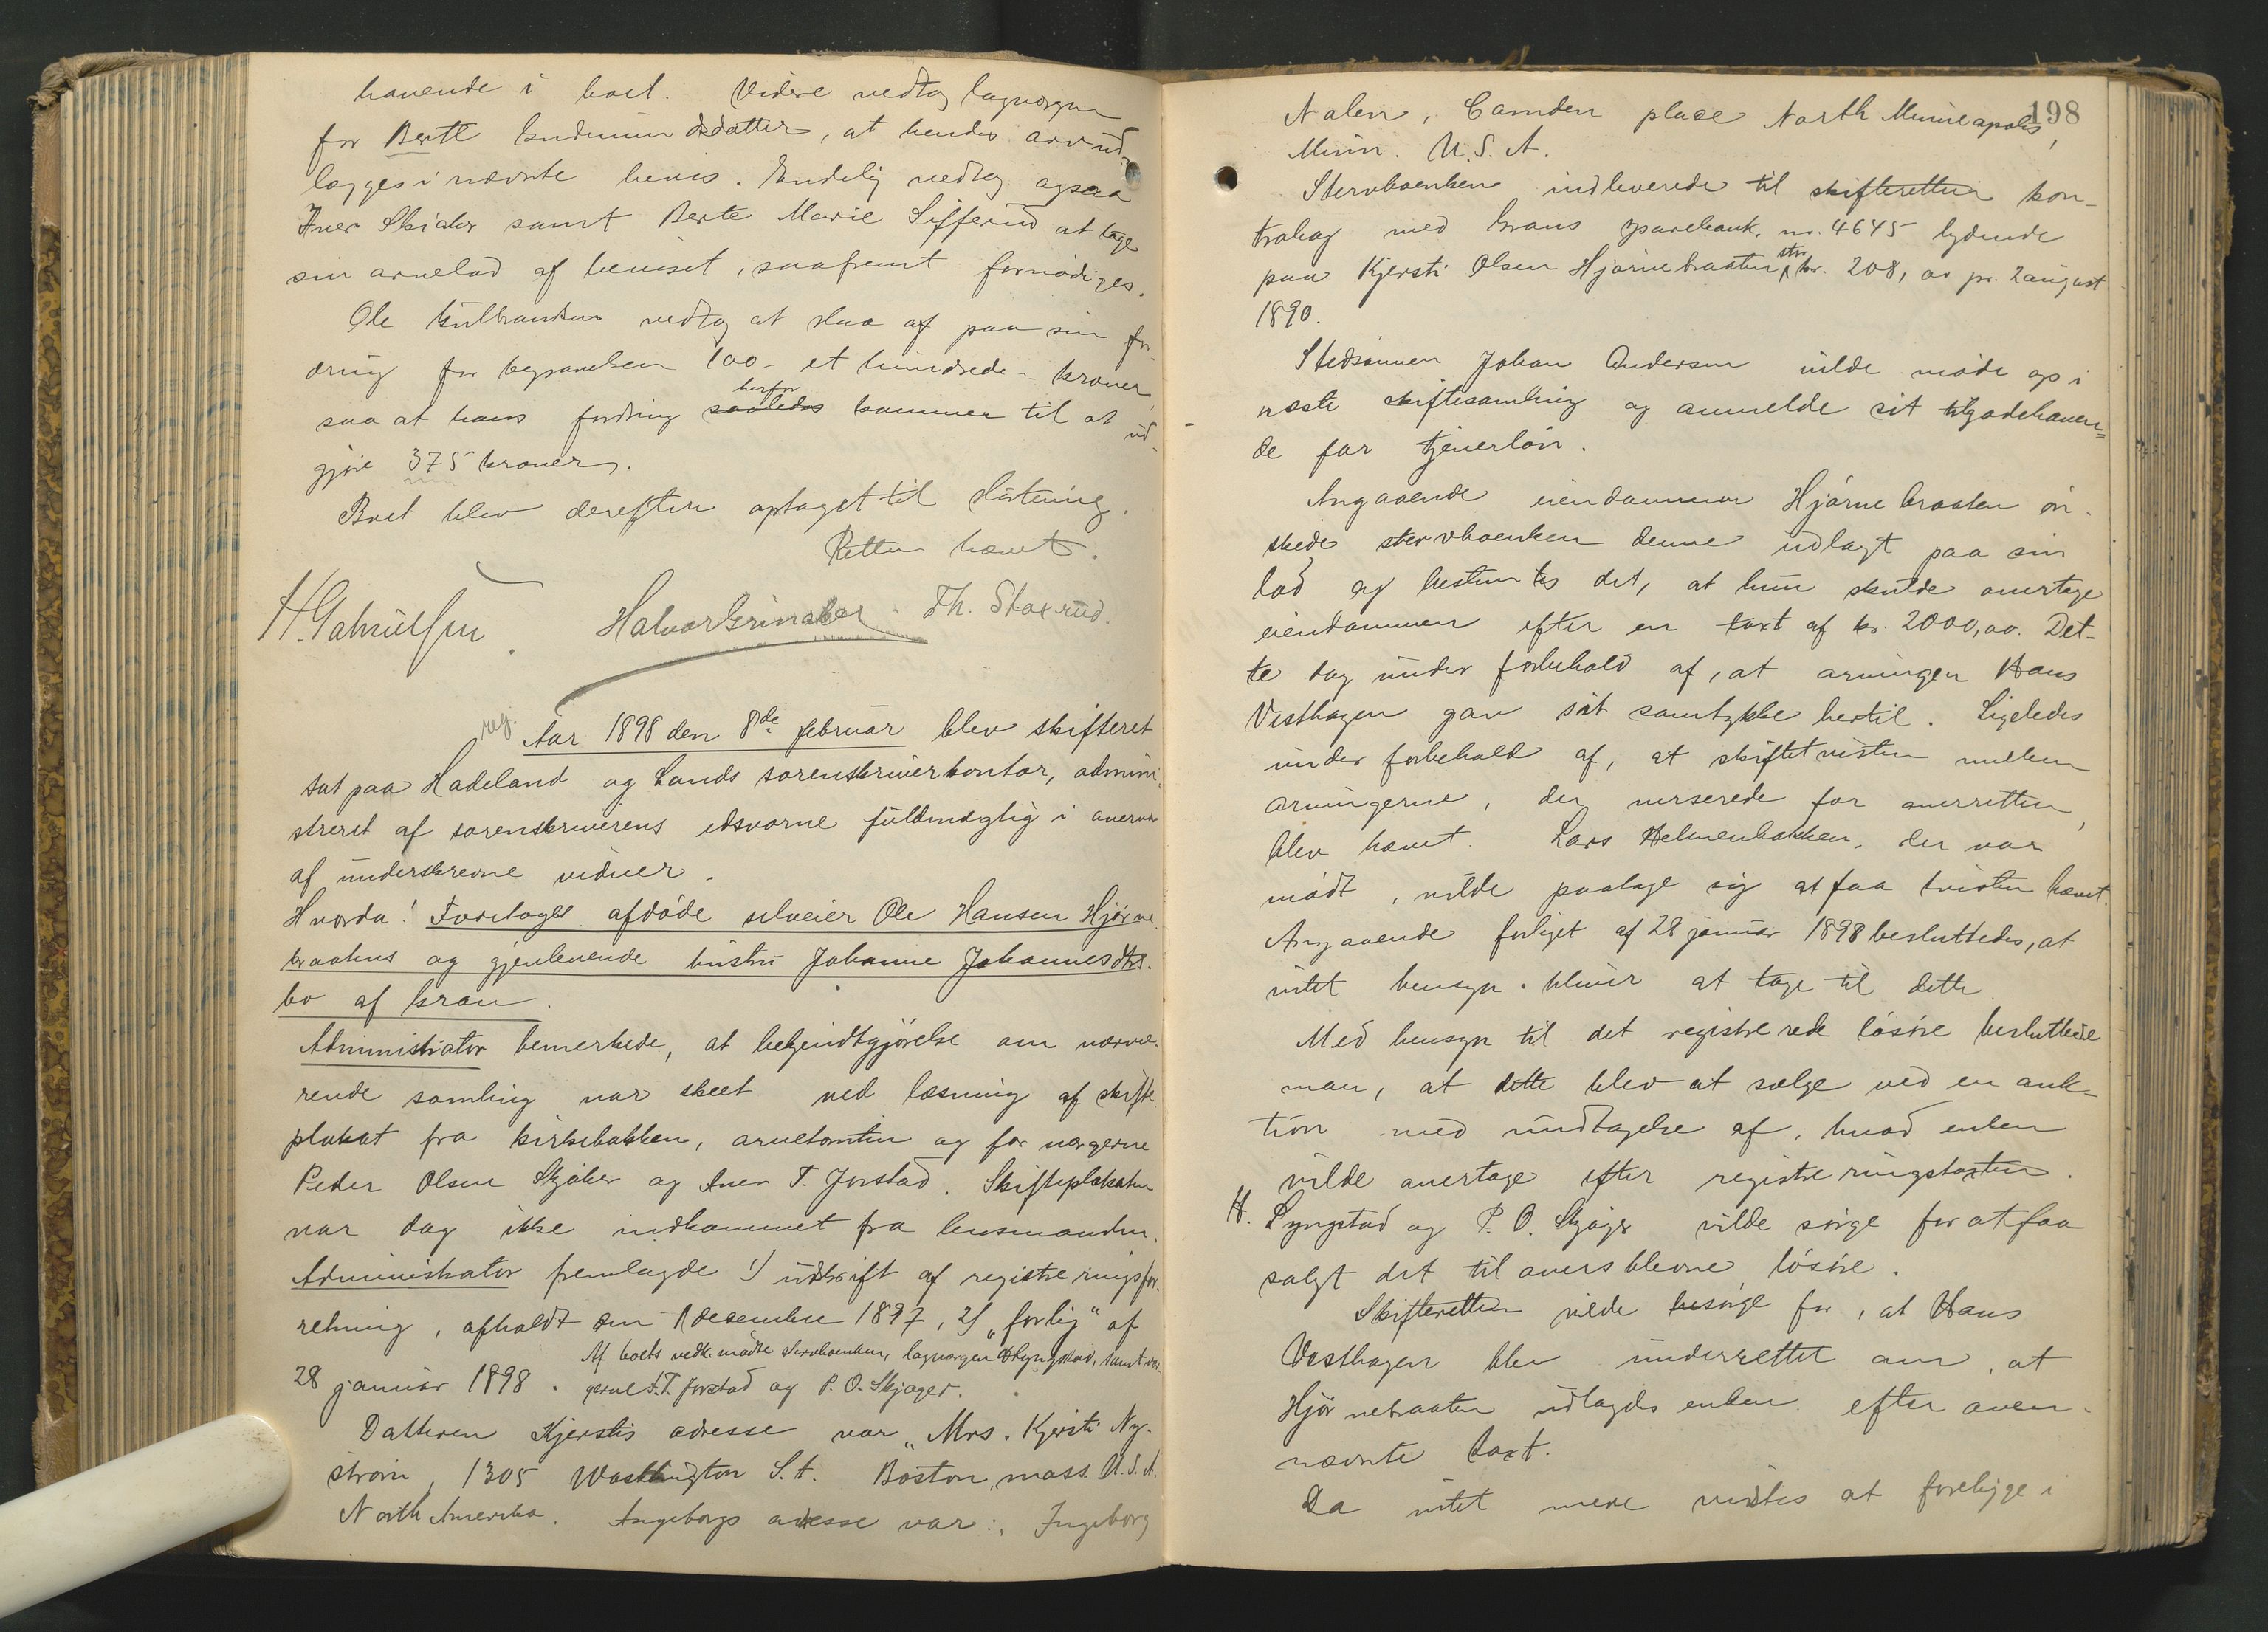 havende i boet. Videre vedtog lagvergen
for Berte Gudmundsdatter, at hendes arv ud-
lægges i nævnte bevis. Endelig vedtog ogsaa
Iver Skiaker samt Berte Marie Sifferud at tage
sin arvelod af beviset, saafremt fornødiges.
Ole Gulbrandsen vedtog at slaa af paa sin for-
dring for begravelsen 100 - et hundrede - kroner,
saa at hans fordring saaledes herfor kommer til at ud-
gjøre 375 kroner.
Boet blev derefter optaget til slutning.
Retten hævet.
H. Gabrielsen. Halvor Grinaker Th. Staxrud.
reg. Aar 1898 den 8de februar blev skifteret
sat paa Hadeland og Lands sorenskriverkontor, admini-
streret af sorenskriverens edsvorne fuldmægtig i overvær
af underskrevne vidner.
Hvorda: Foretoges afdøde selveier Ole Hansen Hjørne-
braatens og gjenlevende hustru Johanne Johannesdtrs.
bo af Gran.
Administrator bemerkede, at bekjendtgjørelse om nærvæ-
rende samling var skeet ved læsning af skifte-
plakat fra kirkebakken, arvetomten og for vergerne
Peder Olsen Skjaker og Iver T. Jorstad. Skifteplakaten
var dog ikke indkommet fra lensmanden.
Administrator fremlagde 1) udskrift af registreringsfor-
retning, afholdt den 1 desember 1897, 2) "forlig" af
28 januar 1898. Af boets vedk. mødte stervboenken, lagvergen H. Lyngstad, samt ver-
gerne I. T. Jorstad og P. O. Skjager.
Datteren Kjerstis adresse var "Mrs. Kjersti Ny-
strøm, 1305 Washington S.t. Boston, mass. U.S.A.
North Amerika. Ingeborgs adresse var: "Ingeborg
198
Nalen, Camden place North Minneapolis,
Minn. U.S.A.
Stervboenken indleverede til skifteretten kon-
trabog med Grans sparebank, nr. 4645 lydende
paa Kjersti Olsen Hjørnebraaten, stor kr. 208,00 pr. 2 august
1890.
Stedsønnen Johan Andersen vilde møde op i
næste skiftesamling og anmelde sit tilgodehaven-
de for tjenerløn.
Angaaende eiendommen Hjørnebraaten øn-
skede stervboenken denne udlagt paa sin
lod og bestemtes det, at hun skulde overtage
eiendommen efter en taxt af kr. 2000,00. Det-
te dog under forbehold af, at arvingen Hans
Vesthagen gav sit samtykke hertil. Ligeledes
under forbehold af, at skiftetvisten mellem
arvingerne, der verserede for overretten,
blev hævet. Lars Helmenbakken, der var
mødt, vilde paatage sig at faa tvisten hævet.
Angaaende forliget af 28 januar 1898 besluttedes, at
intet hensyn bliver at tage til dette.
Med hensyn til det registrerede løsøre besluttede
man, at dette blev at sælge ved en auk-
tion med undtagelse af, hvad enken
vilde overtage efter registreringstaxten.
H. Lyngstad og P. O. Skjager vilde sørge for at faa
solgt det tiloversblevne løsøre.
Skifteretten vilde besørge for, at Hans
Vesthagen blev underrettet om, at
Hjørnebraaten udlagdes enken efter oven-
nævnte taxt.
Da intet mere vidstes at foreligge i